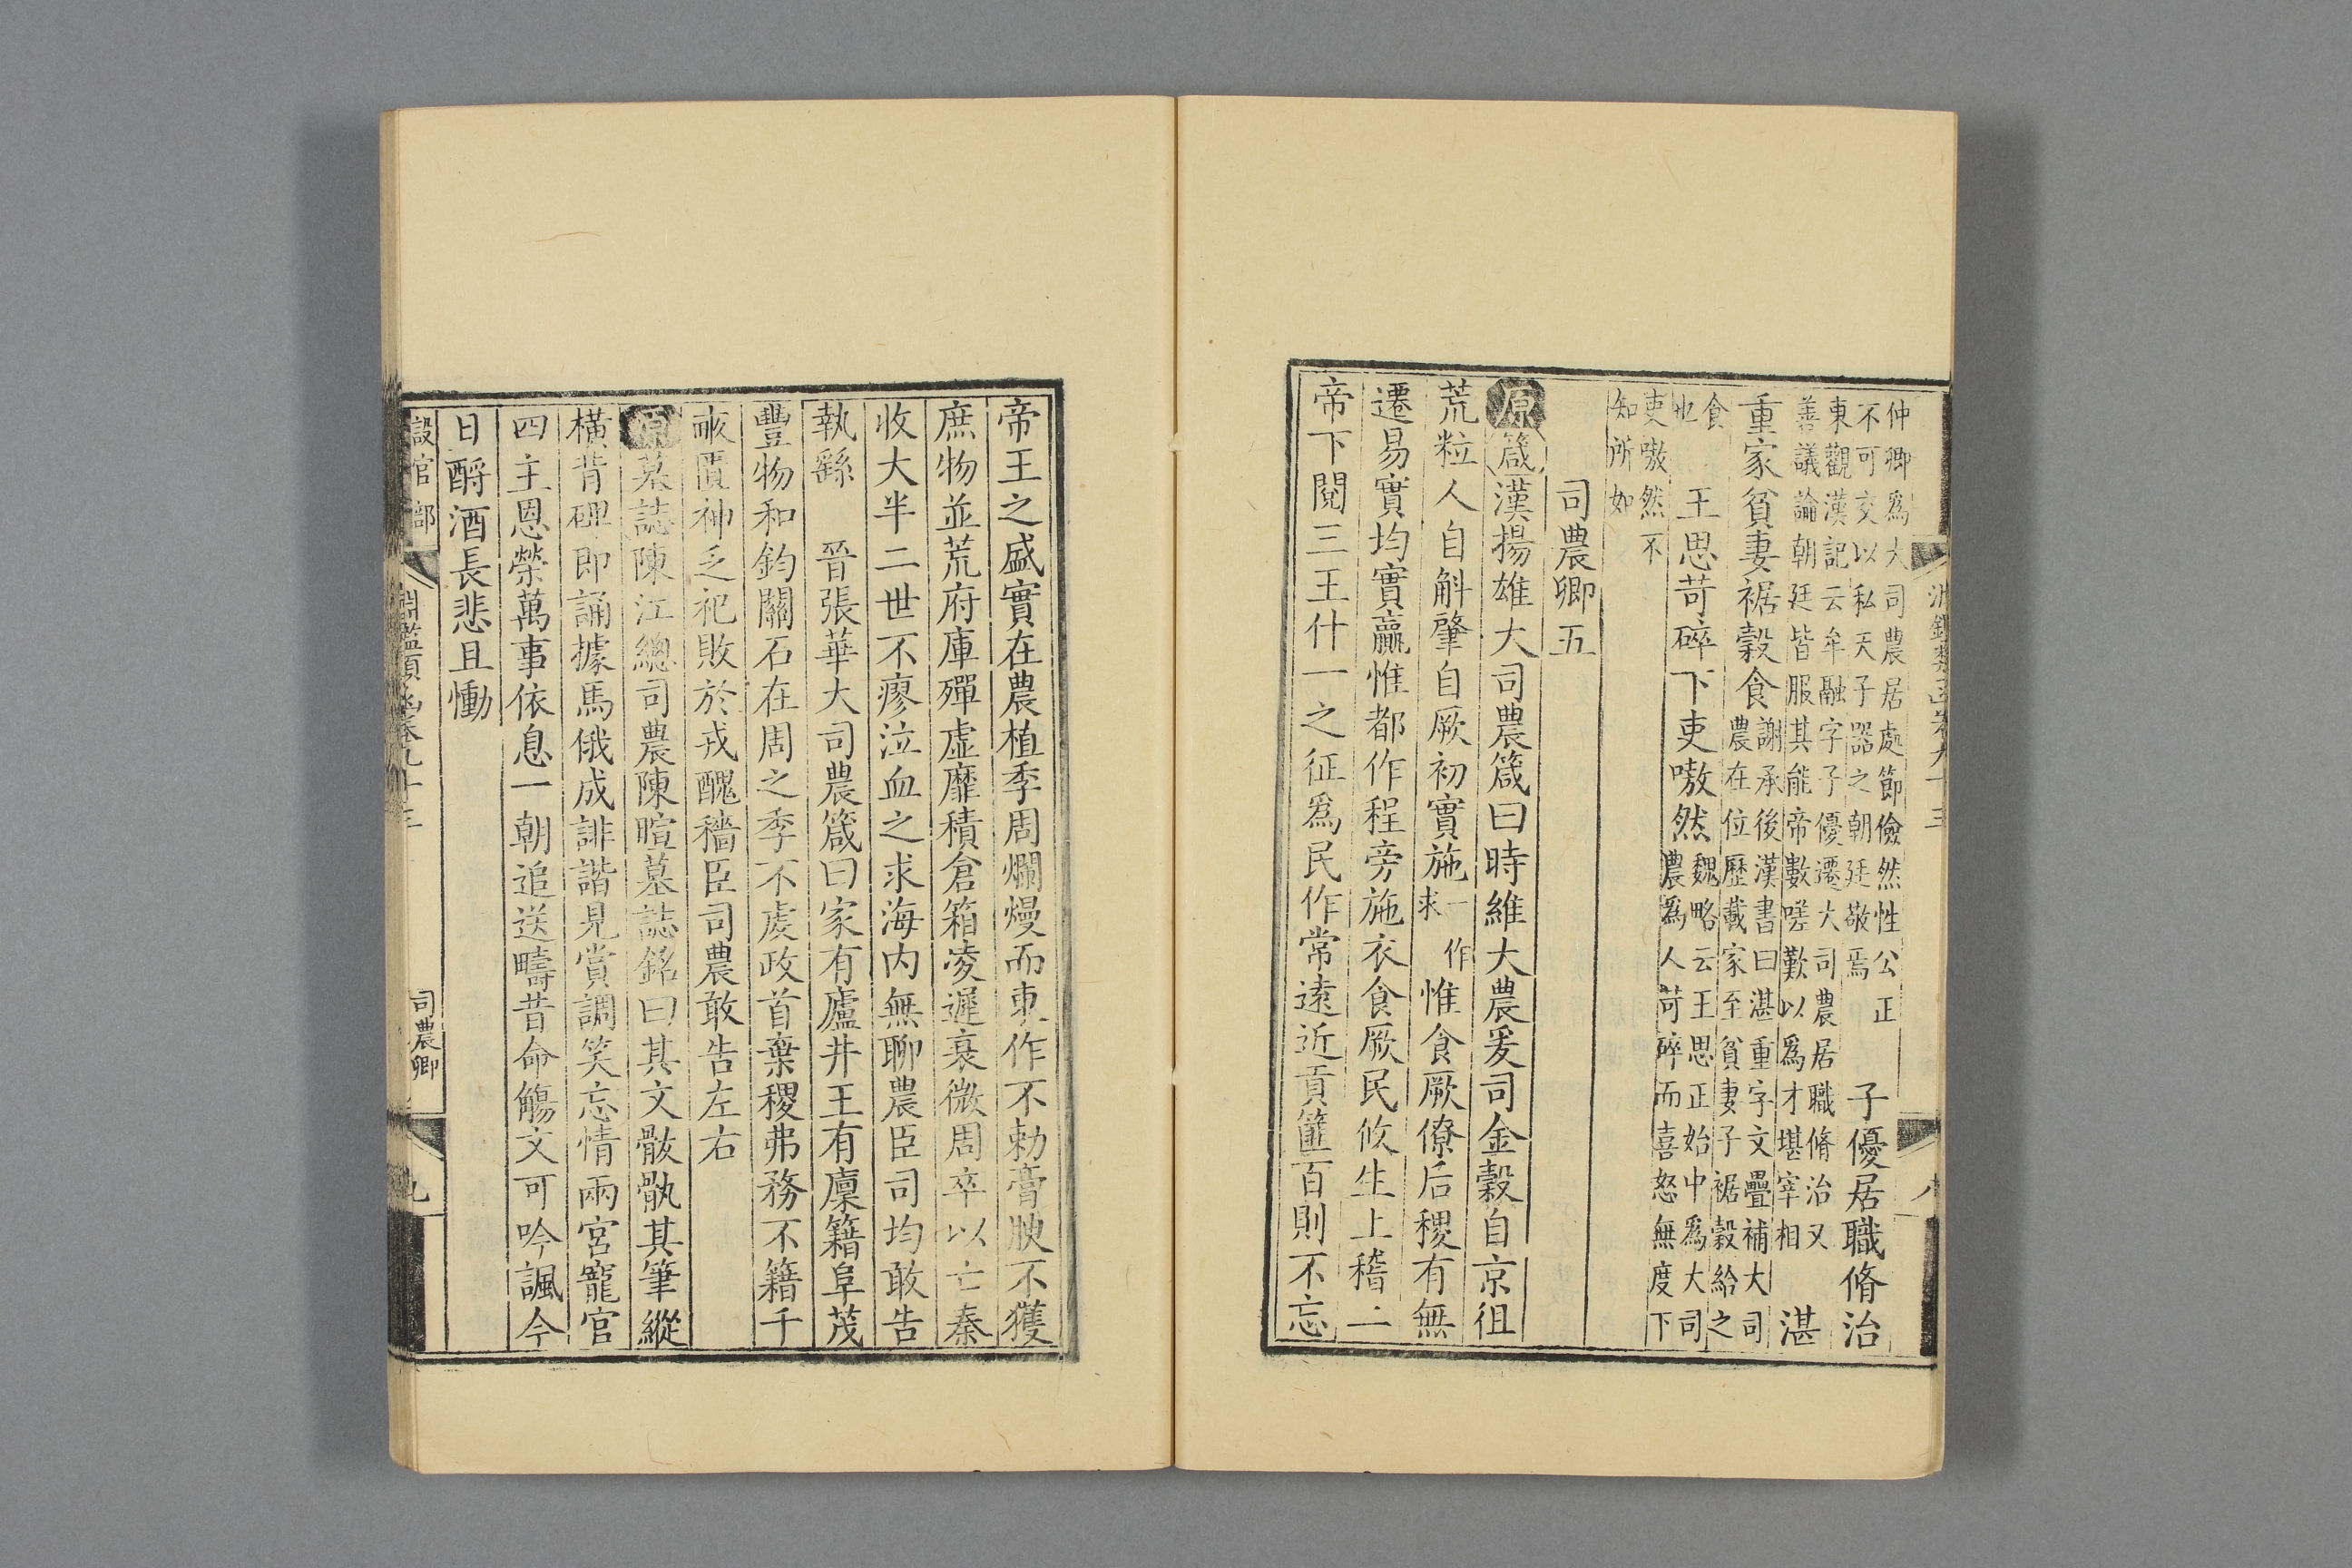 淵鑑類函卷九十三
八
仲卿爲大司農居處節儉然性公正
不可交以私天子器之朝廷敬焉
子優居職脩治
東觀漢記云牟融字子優遷大司農居職脩治又
善議論朝廷皆服其能帝數嗟歎以爲才堪宰相
湛
重家貧妻裾穀食
謝承後漢書曰湛重字文疊補大司
農在位歷載家至貧妻子裾穀給之
食
也
王思苛碎下吏嗷然
魏略云王思正始中爲大司
農爲人苛碎而喜怒無度下
吏嗷然不
知所如
司農卿五
原箴漢揚雄大司農箴曰時維大農爰司金穀自京徂
荒粒人自斛肇自厥初實施一作求惟食厥僚后稷有無
遷易實均實贏惟都作程旁施衣食厥民攸生上稽二
帝下閱三王什一之征爲民作常遠近貢篚百則不忘
帝王之盛實在農植季周爛熳而東作不勅膏腴不獲
庶物並荒府庫殫虛靡積倉箱凌遲衰微周卒以亡秦
收大半二世不瘳泣血之求海内無聊農臣司均敢告
執繇　晉張華大司農箴曰家有廬井王有廩籍阜茂
豐物和鈞關石在周之季不虔政首棄稷弗務不籍千
畝匱神乏祀敗於戎醜穡臣司農敢告左右
原墓誌陳江總司農陳暄墓誌銘曰其文骸骩其筆縱
橫背碑即誦據馬俄成誹諧見賞調笑忘情兩宮寵宦
四主恩榮萬事依息一朝追送疇昔命觴文可吟諷今
日酹酒長悲且慟
設官部
淵鑑類函卷九十三
司農卿
九